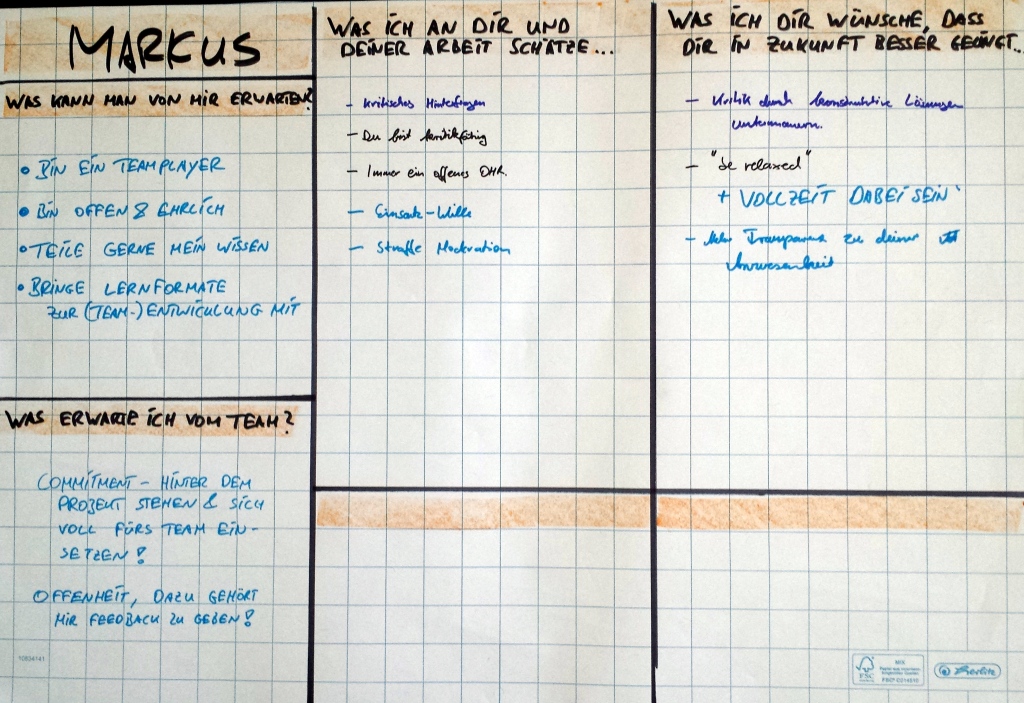 MARKUS
WAS KANN MAN VON MIR ERWARTEN?
• BIN EIN TEAMPLAYER
• BIN OFFEN & EHRLICH
• TEILE GERNE MEIN WISSEN
• BRINGE LERNFORMATE
ZUR (TEAM-) ENTWICKLUNG MIT
WAS ERWARTE ICH VOM TEAM?
COMMITMENT – HINTER DEM
PROJEKT STEHEN & SICH
VOLL FÜRS TEAM EIN-
SETZEN!
OFFENHEIT, DAZU GEHÖRT
MIR FEEDBACK ZU GEBEN!
10634141
WAS ICH AN DIR UND
DEINER ARBEIT SCHÄTZE...
– Kritisches Hinterfragen
– Du bist kritikfähig
– Immer ein offenes OHR.
– Einsatz-Wille
– Straffe Moderation
WAS ICH DIR WÜNSCHE, DASS
DIR IN ZUKUNFT BESSER GELINGT...
– Kritik durch konstruktive Lösungen
untermauern.
– "be relaxed"
+ VOLLZEIT DABEI SEIN
– Mehr Transparenz zu deiner
Anwesenheit
FSC
MIX
FSC® C014510
Herlitz